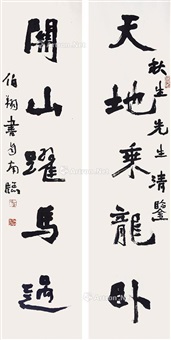 秋生先生清鑒
天地乘龍卧
關山躍馬過
伯翔書